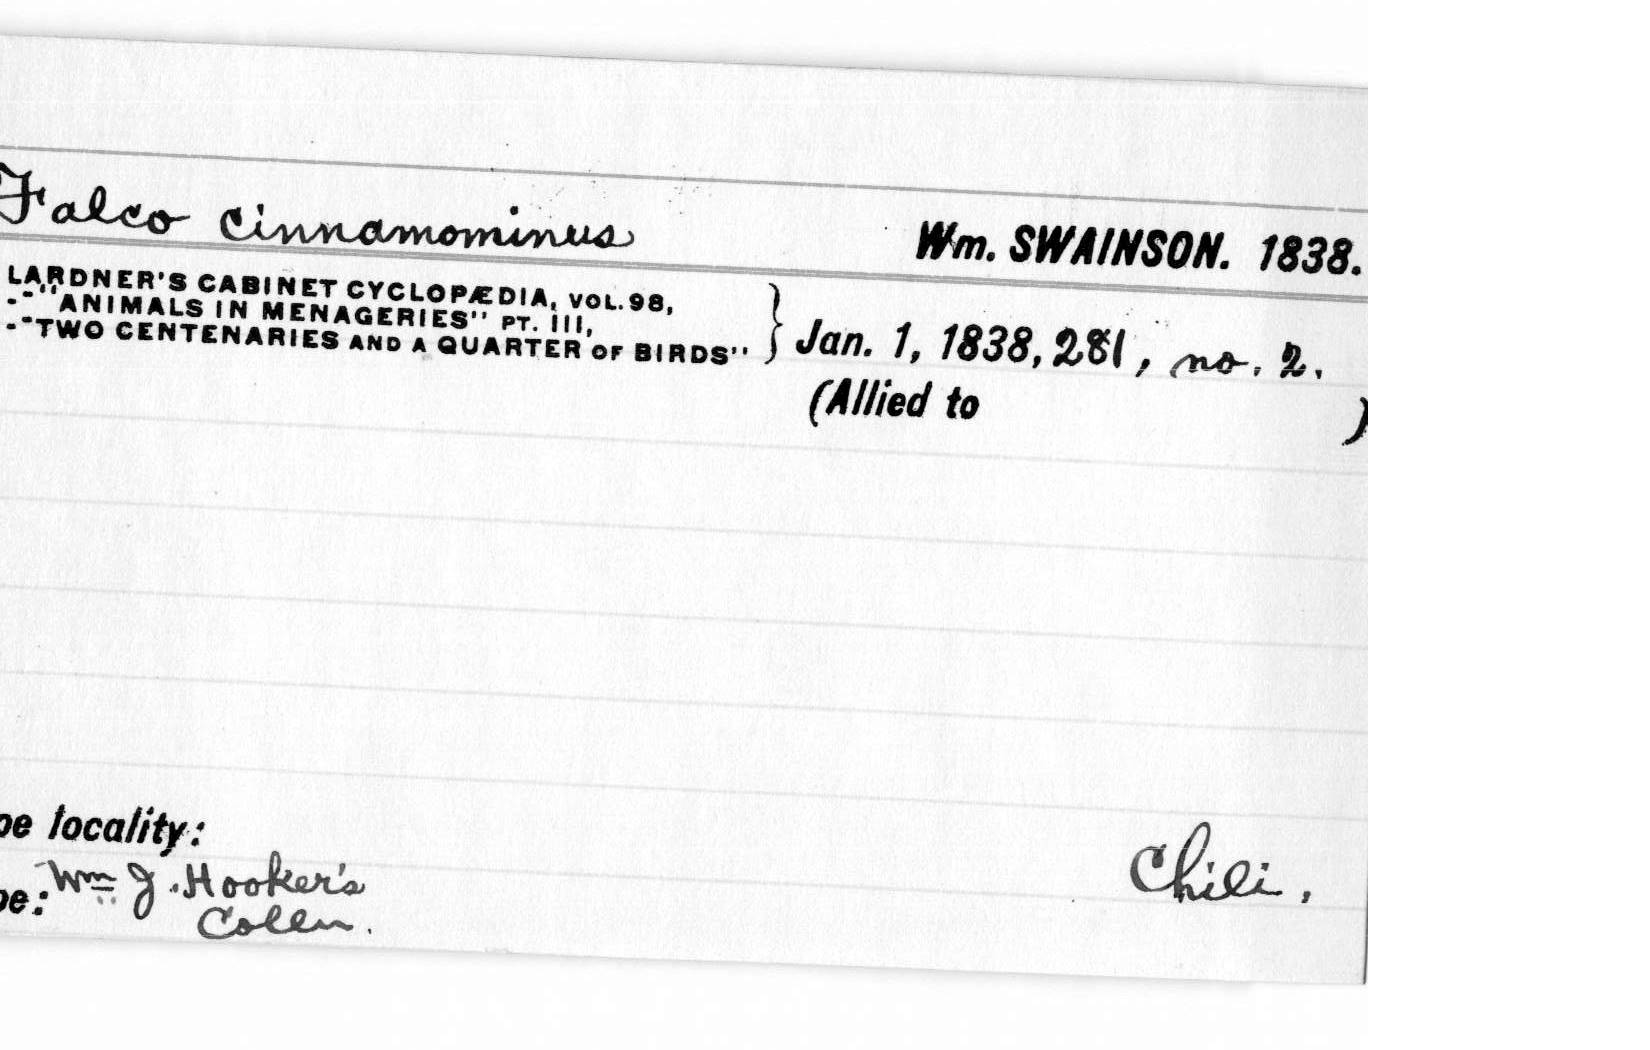 Falco cinnamominus
Wm. SWAINSON. 1838.
LARDNER'S CABINET CYCLOPÆDIA, VOL. 98,
-"-"ANIMALS IN MENAGERIES" PT. III,
-"-TWO CENTENARIES AND A QUARTER OF BIRDS"
} Jan. 1, 1838, 281, no. 2.
(Allied to )
pe locality:
Chili.
pe: Wm J. Hooker's
Colln.